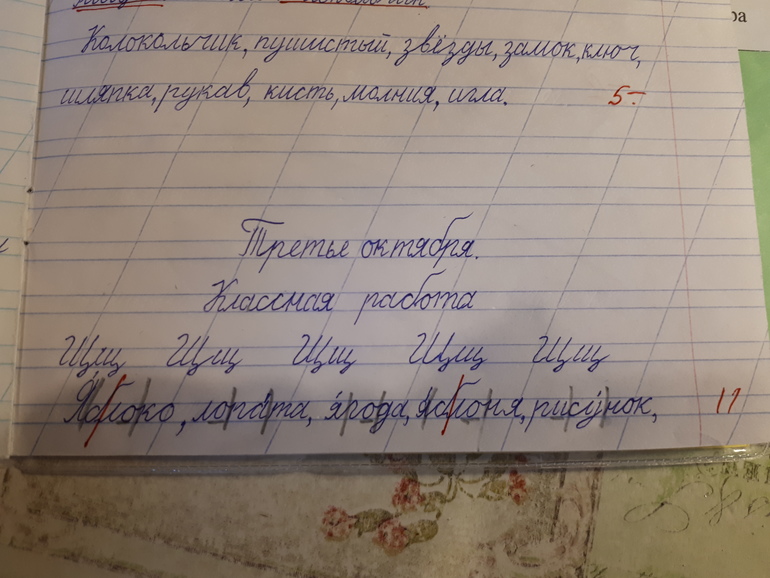 ра
Колокольчик, пушистый, звёзды, замок, ключ,
шляпка, рукав, кисть, молния, игла. 5-
Третье октября.
Классная работа
Щщ Щщ Щщ Щщ Щщ
Яблоко, лопата, ягода, яблоня, рисунок, 11